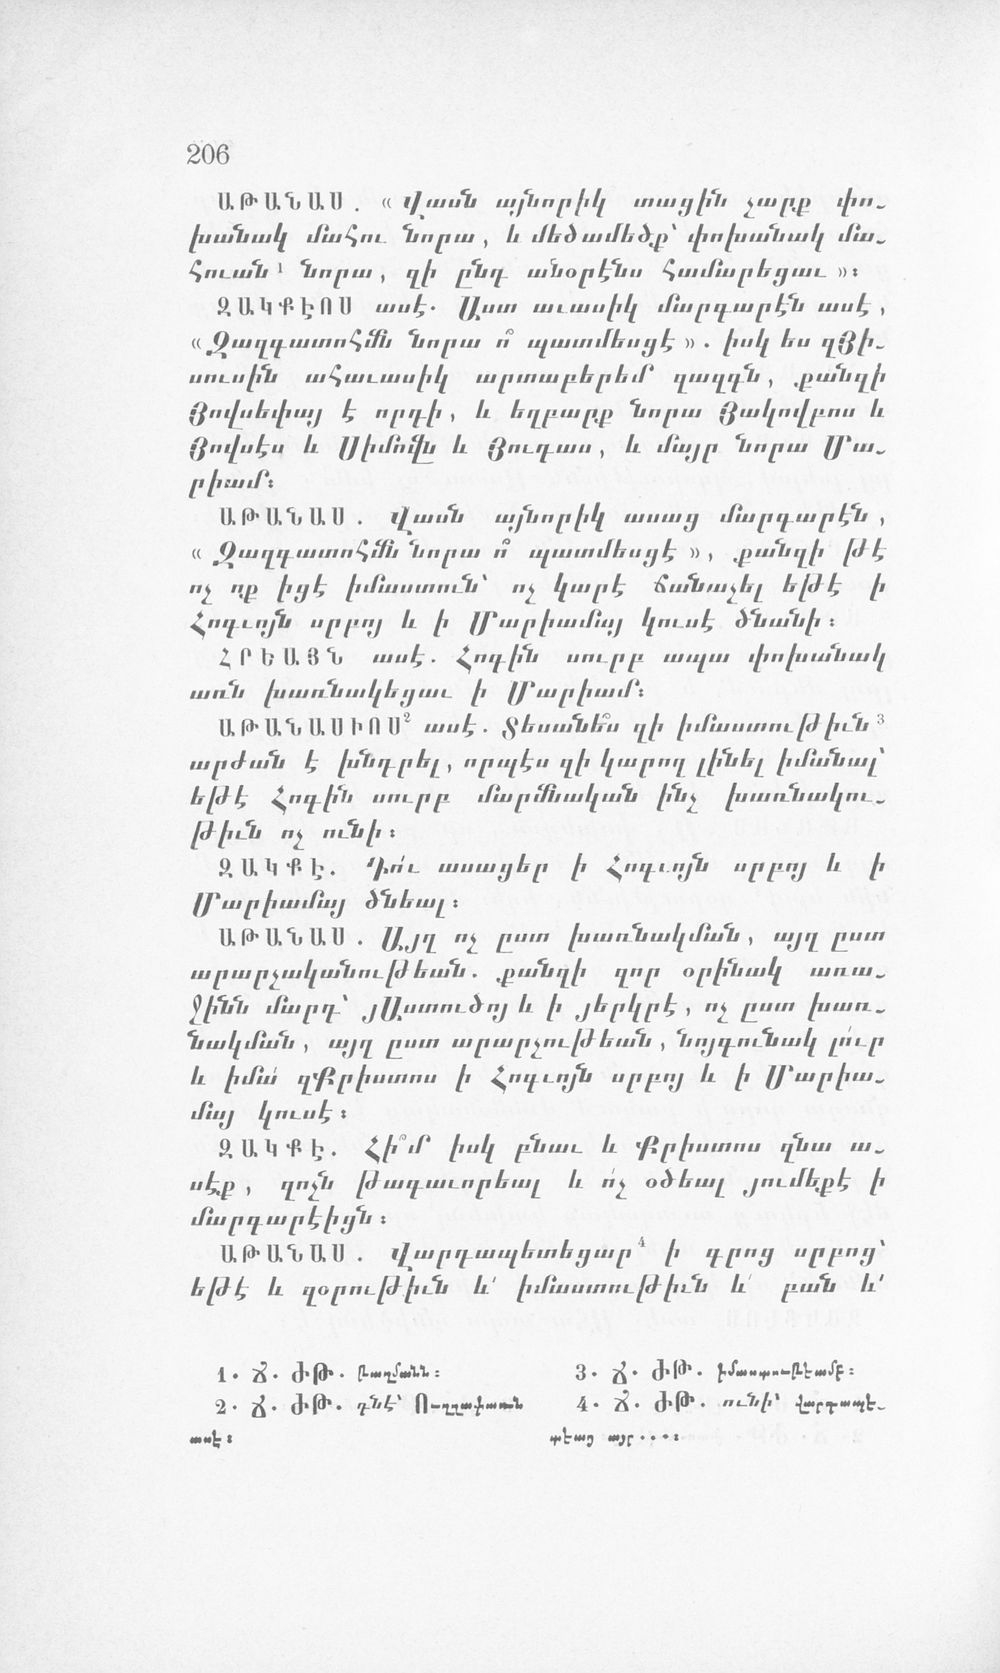 206
ԱԹԱՆԱՍ. «Վասն այնորիկ տացին չարք փո-
խանակ մահու նորա, և մեծամեծք՝ փոխանակ մա-
հուան¹ նորա, զի ընդ անօրէնս համարեցաւ»։
ԶԱԿՔԷՈՍ ասէ. Աստ աւասիկ մարգարէն ասէ,
«Զազգատոհմն նորա ո՞ պատմեսցէ». իսկ ես զՅի-
սուսին ահաւասիկ արտաբերեմ զազգն, քանզի
Յովսեփայ է որդի, և եղբարք նորա Յակովբոս և
Յովսէս և Սիմովն և Յուդաս, և մայր նորա Մա-
րիամ։
ԱԹԱՆԱՍ. Վասն այնորիկ ասաց մարգարէն,
«Զազգատոհմն նորա ո՞ պատմեսցէ», քանզի թէ
ոչ ոք իցէ իմաստուն՝ ոչ կարէ ճանաչել եթէ ի
Հոգւոյն սրբոյ և ի Մարիամայ կուսէ ծնանի։
ՀՐԵԱՅՆ ասէ. Հոգին սուրբ ապա փոխանակ
առն խառնակեցաւ ի Մարիամ։
ԱԹԱՆԱՍԻՈՍ² ասէ. Տեսանե՞ս զի իմաստութիւն³
արժան է խնդրել, որպէս զի կարող լինել իմանալ՝
եթէ Հոգին սուրբ մարմնական ինչ խառնակու-
թիւն ոչ ունի։
ԶԱԿՔԷ. Դո՛ւ ասացեր ի Հոգւոյն սրբոյ և ի
Մարիամայ ծնեալ։
ԱԹԱՆԱՍ. Այղ ոչ ըստ խառնակման, այղ ըստ
արարչականութեան. քանզի զոր օրինակ առա-
ջինն մարդ՝ յԱստուծոյ և ի յերկրէ, ոչ ըստ խառ-
նակման, այղ ըստ արարչութեան, նոյգունակ լո՛ւր
և իմա՛ զՔրիստոս ի Հոգւոյն սրբոյ և ի Մարիա-
մայ կուսէ։
ԶԱԿՔԷ. Հի՞մ իսկ բնաւ և Քրիստոս զնա ա-
սէք, զոչն թագաւորեալ և ո՛չ օծեալ յումեքէ ի
մարգարէիցն։
ԱԹԱՆԱՍ. Վարդապետեցար⁴ ի գրոց սրբոց՝
եթէ և զօրութիւն և՛ իմաստութիւն և՛ բան և՛
1. Ճ. ԺԹ. թաղմանն։
2. Ճ. ԺԹ. դնէ՝ Ուղղափառն
ասէ։
3. Ճ. ԺԹ. իմաստութեամբ։
4. Ճ. ԺԹ. ունի՝ վարդապե-
տեաց այլ...։